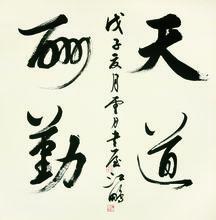 天道
酬勤
戊子夏月
江鹏